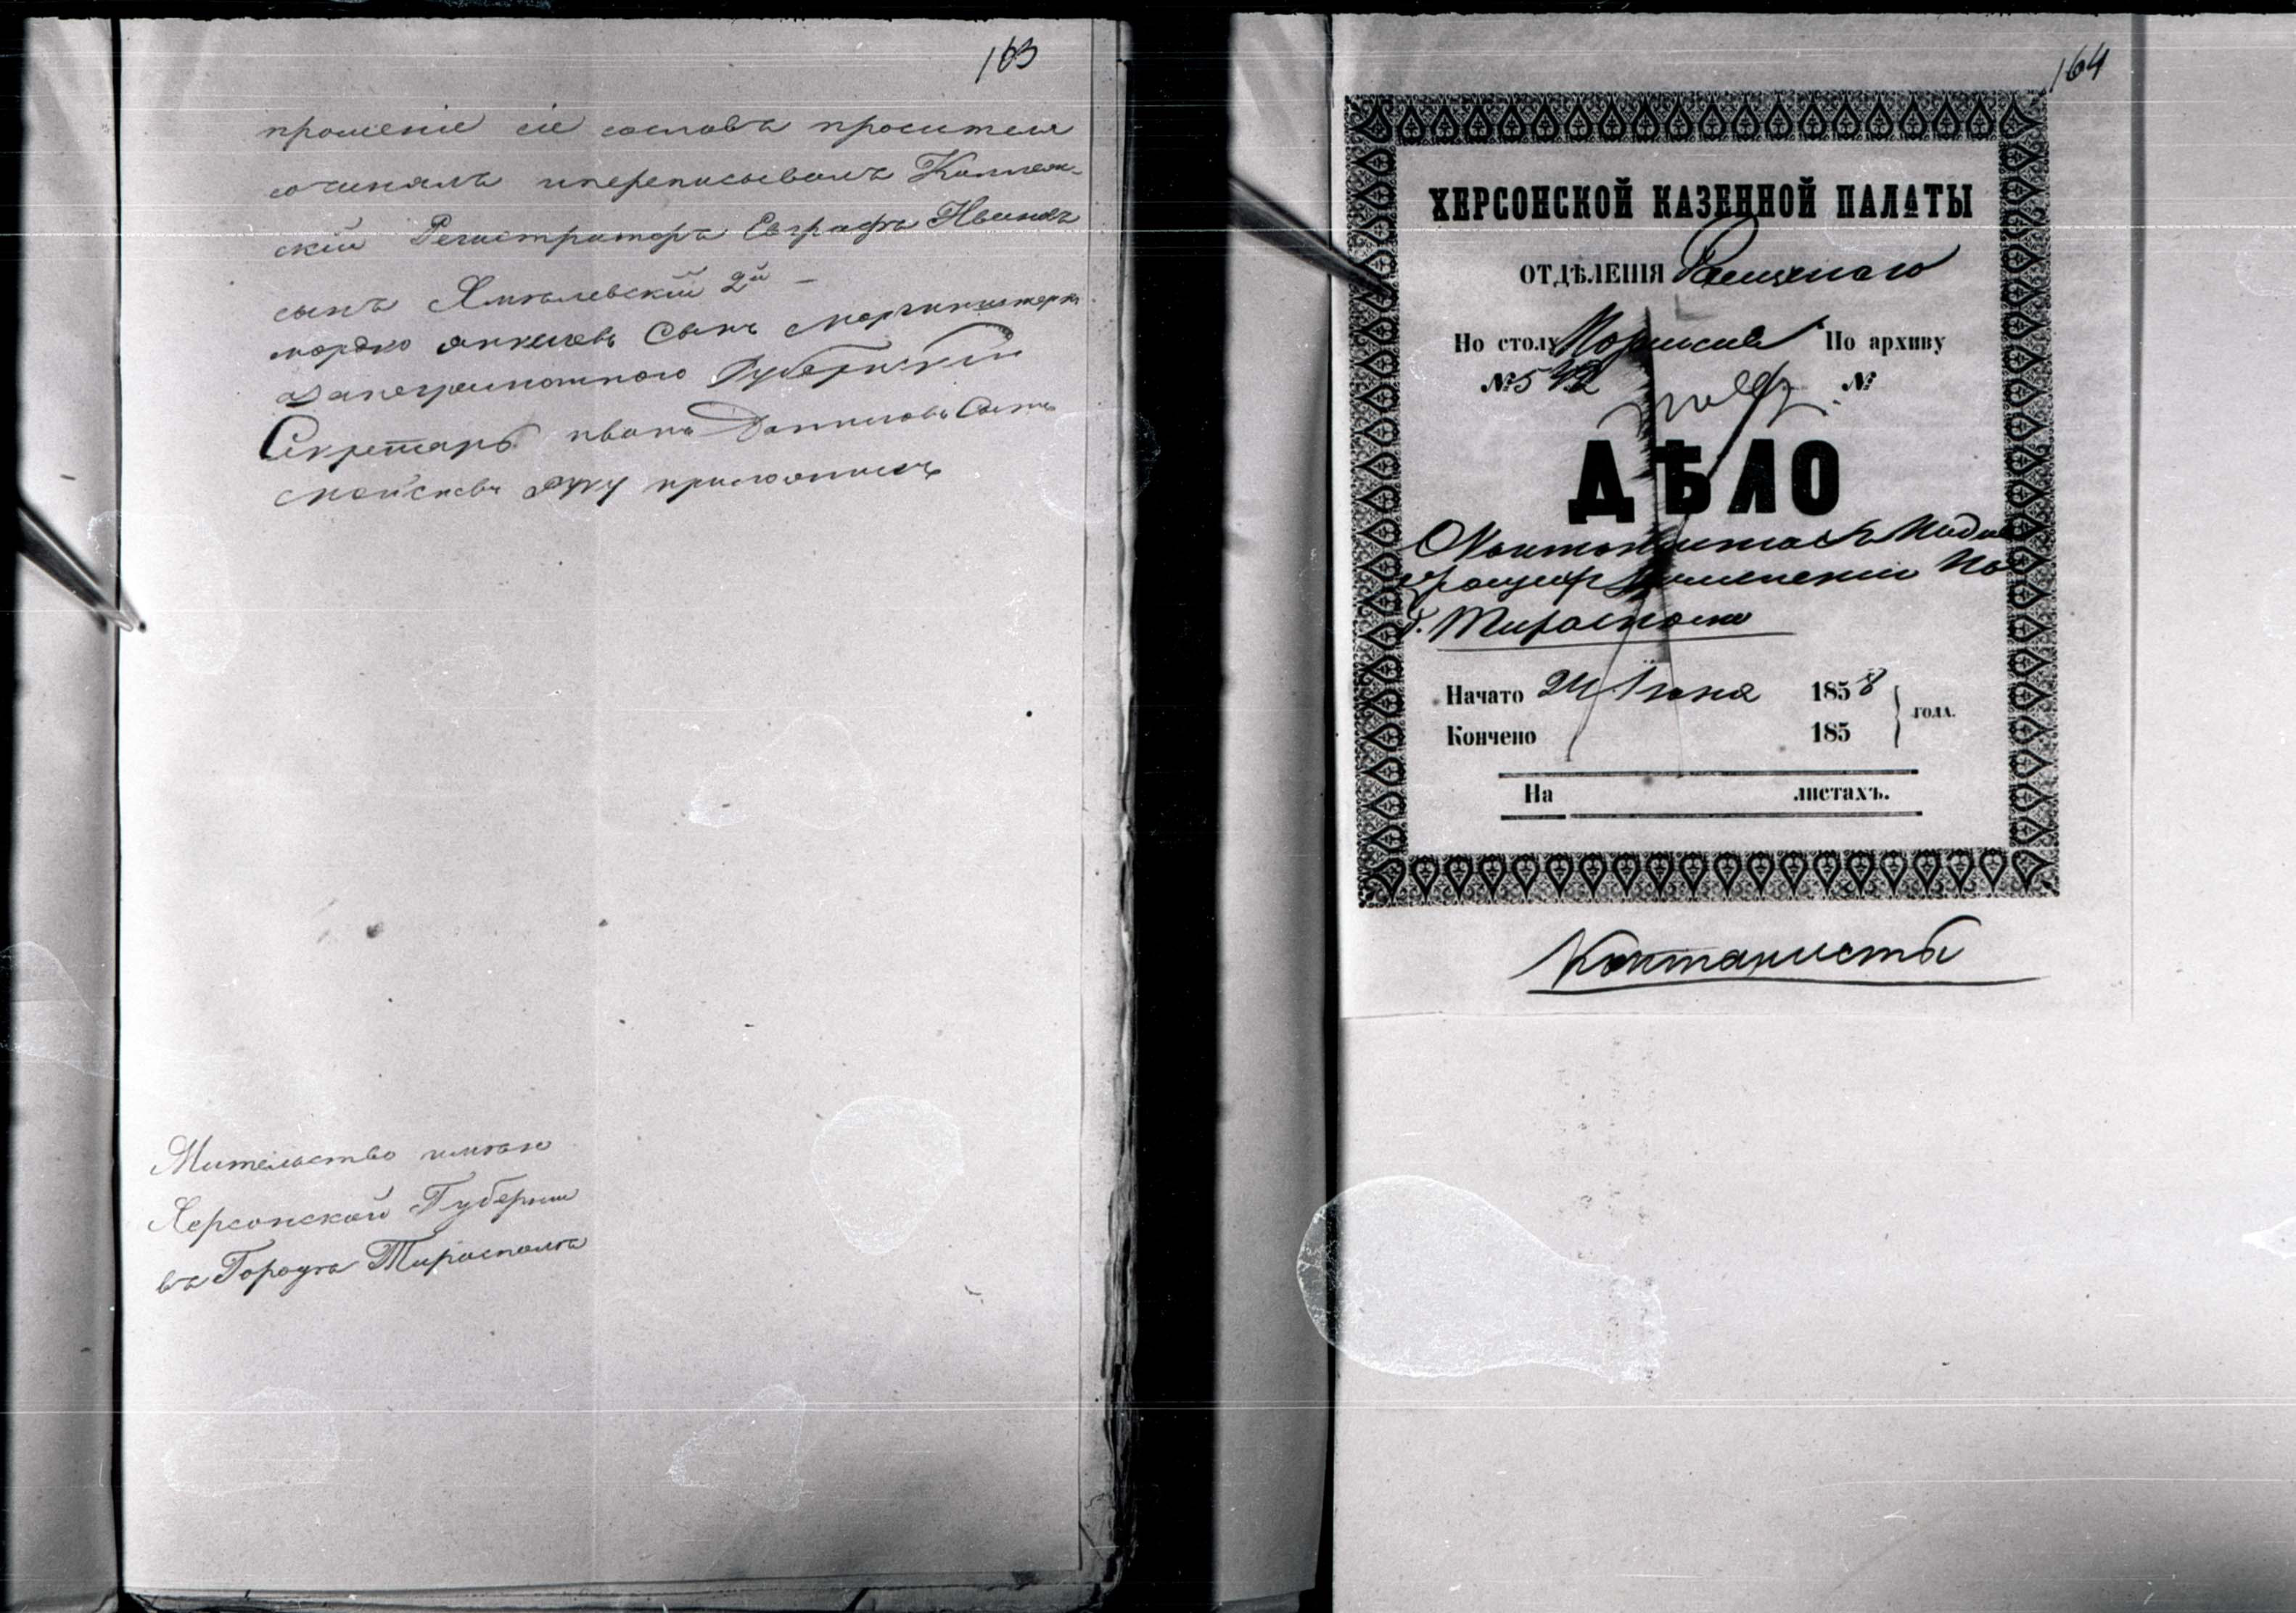 163
прошеніе сіе со словъ просителя
сочинялъ и переписывалъ Коллеж-
скій Регистраторъ Евграфъ Ивановъ
сынъ Ямполевскій 2й –
мордко янкелевъ Сынъ
за неграмотного Губернскій
Секретарь иванъ Даниловъ Сынъ
руку приложилъ
Жительство имѣю
Херсонской Губерніи
въ Городѣ Тирасполѣ
164
ХЕРСОНСКОЙ КАЗЕННОЙ ПАЛАТЫ
ОТДѢЛЕНІЯ Ревизскаго
По столу По архиву
№ 542 №
ДѢЛО
г. Тирасполю
Начато 24 Іюня 1858
года.
Кончено 185
На листахъ.
Кантонисты